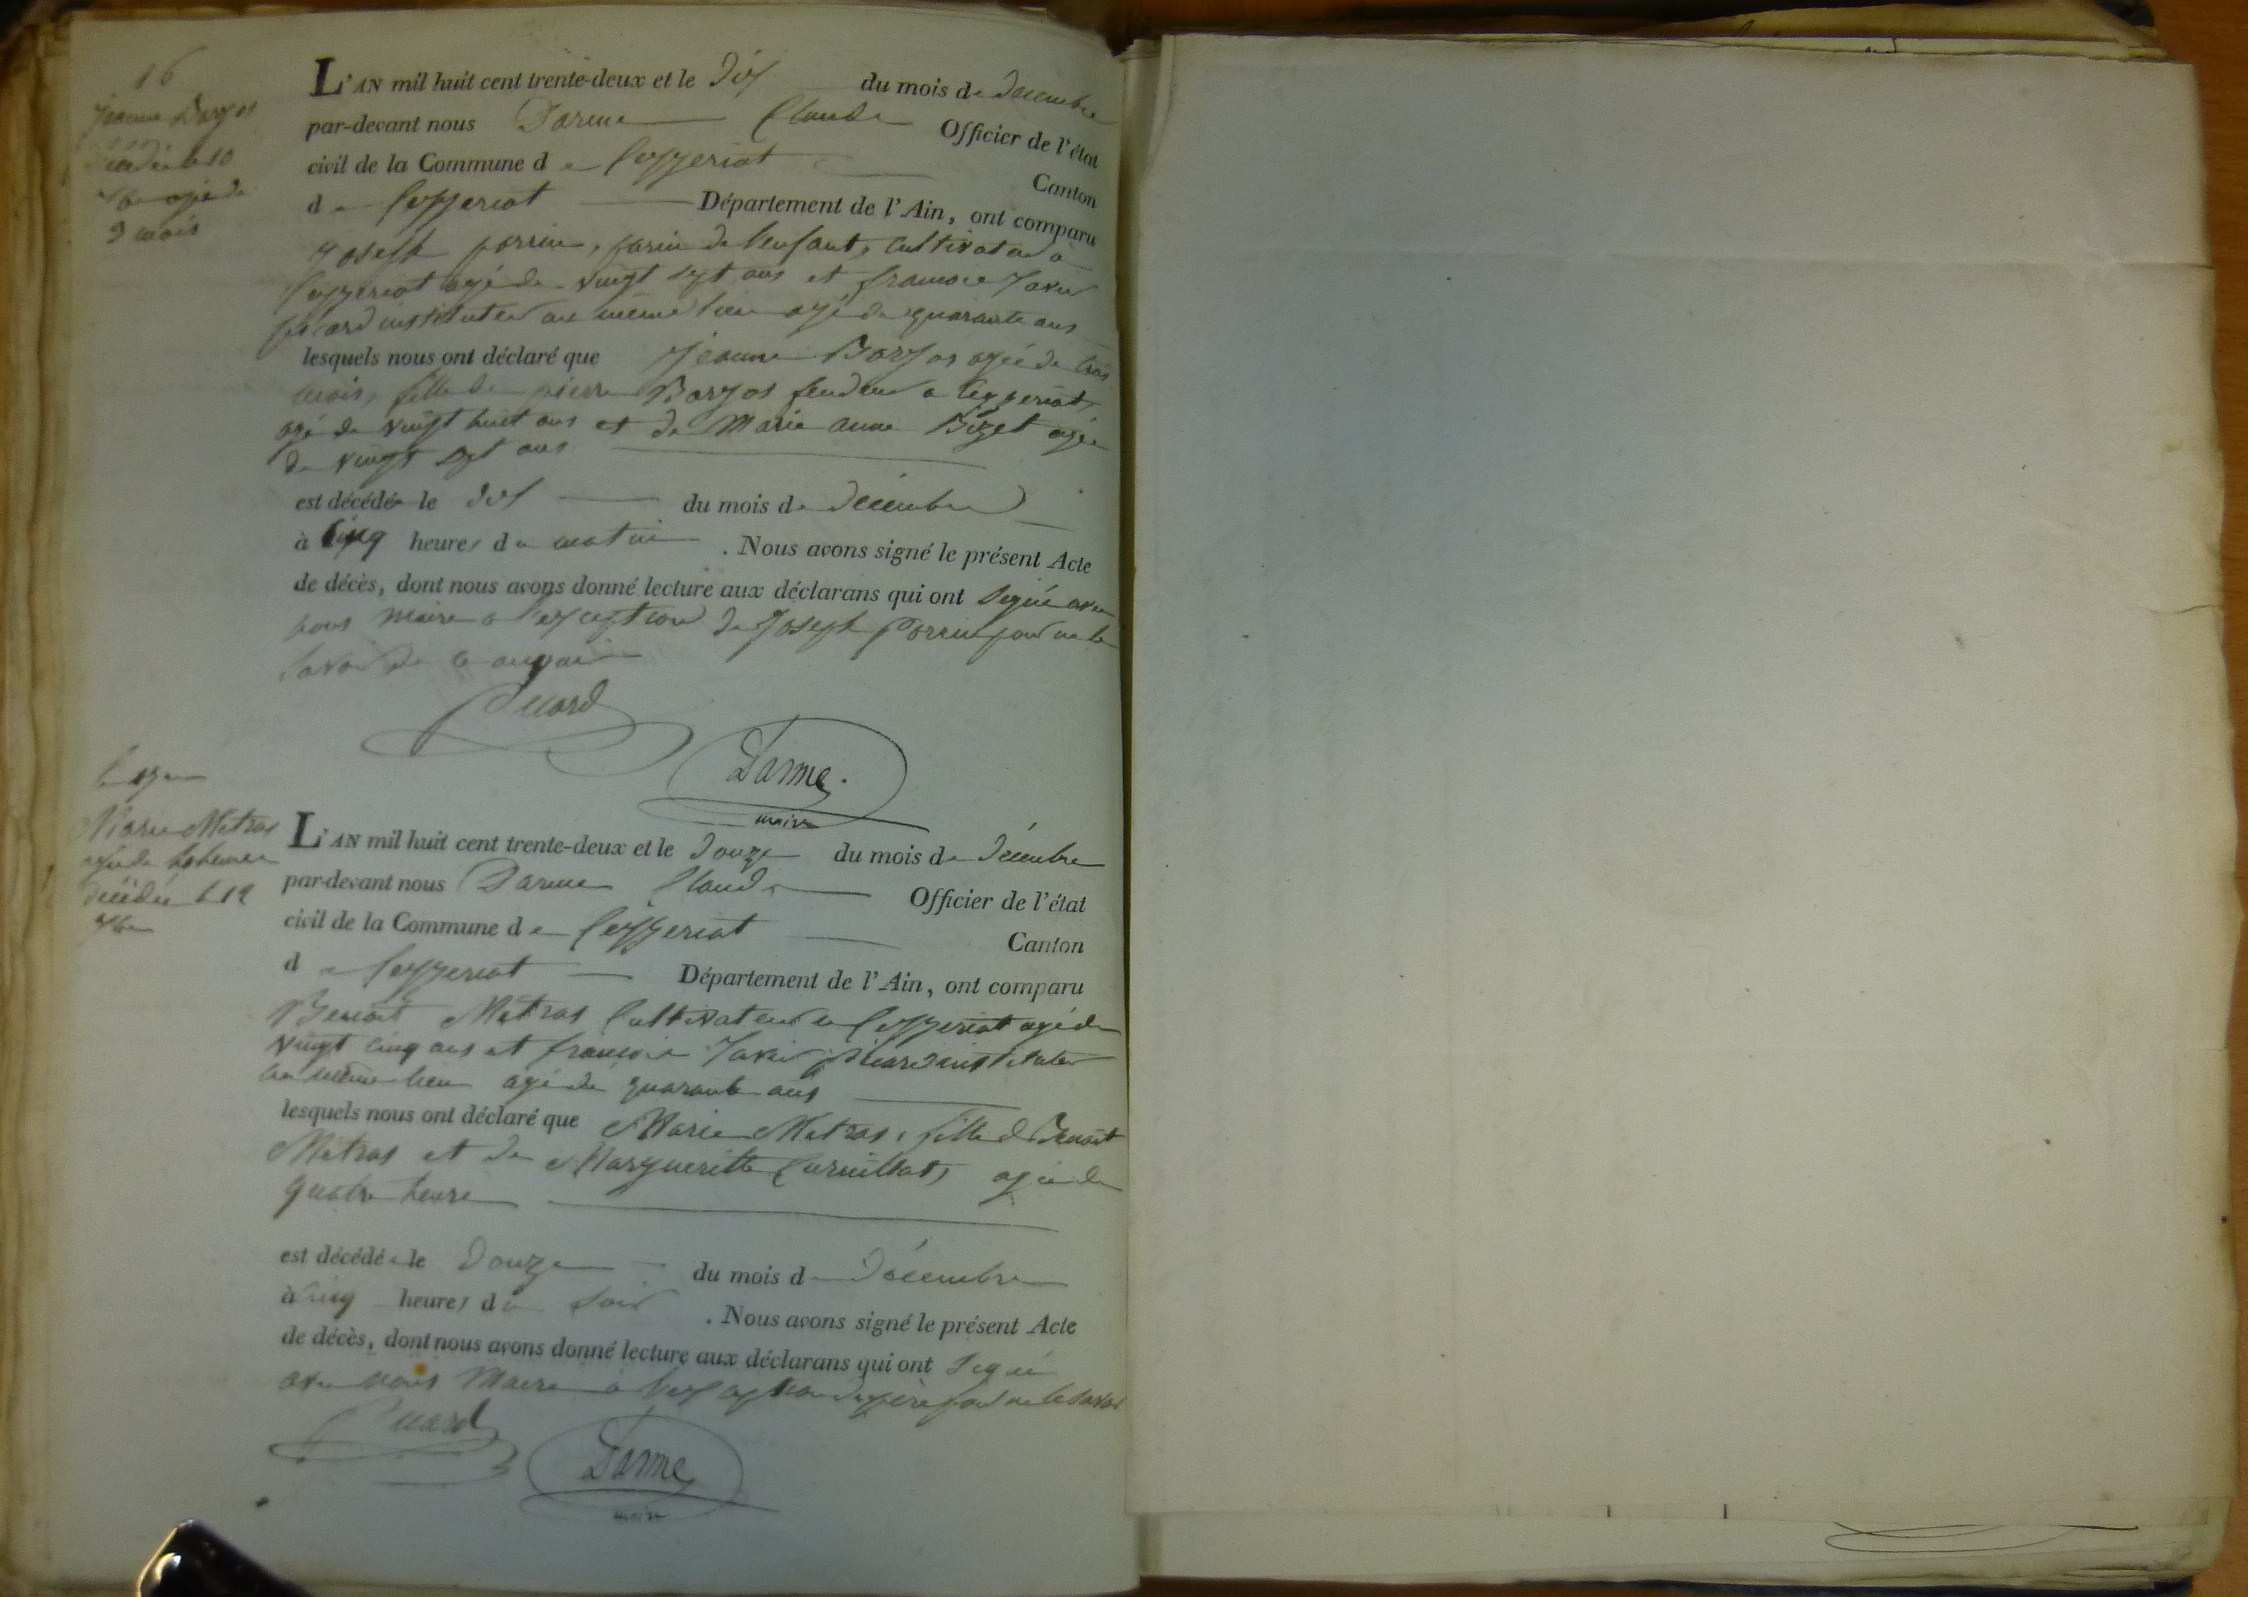 16
Jeanne Borjos
décédée le 10
xbre agée de
3 mois
L'AN mil huit cent trente-deux et le dix du mois de décembre
par-devant nous Darme Claude Officier de l'état
civil de la Commune de Ceyzeriat Canton
de Ceyzeriat Département de l'Ain, ont comparu
Joseph Perrin, parin de l'enfant, cultivateur a
Ceyzeriat agé de vingt sept ans et francois Xavier
picard instituteur au même lieu agé de quarante ans
lesquels nous ont déclaré que Jeanne Borjos agée de trois
mois, fille de pierre Borjos fendeur a Ceyzeriat,
agé de vingt huit ans et de Marie anne Bizet agée
de vingt sept ans
est décédée le dix du mois de décembre
à cinq heures du matin . Nous avons signé le présent Acte
de décès, dont nous avons donné lecture aux déclarans qui ont signé avec
nous Maire a l'exception de Joseph Perrin pour ne le
savoir de ce enquis
Picard
Darme
maire
Marie Metras
agée de 4 heures
décédée le 12
xbre
L'AN mil huit cent trente-deux et le douze du mois de décembre
par-devant nous Darme Claude Officier de l'état
civil de la Commune de Ceyzeriat Canton
de Ceyzeriat Département de l'Ain, ont comparu
Benoit Metras Cultivateur a Ceyzeriat agé de
vingt cinq ans et francois Xavier picard instituteur
au même lieu agé de quarante ans
lesquels nous ont déclaré que Marie Metras, fille de Benoit
Metras et de Margueritte Curnillat, agée de
quatre heure
est décédée le douze du mois de décembre
à cinq heures du soir . Nous avons signé le présent Acte
de décès, dont nous avons donné lecture aux déclarans qui ont signé
avec nous Maire a l'exception du père pour ne le savoir
Picard
Darme
maire